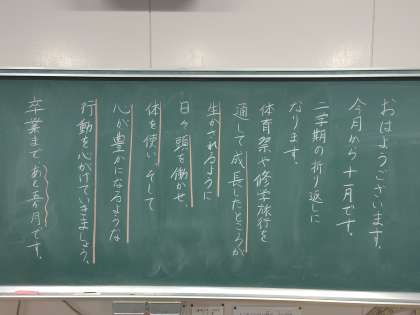 おはようございます。
今月から十一月です。
二学期の折り返しに
なります。
体育祭や修学旅行を
通して成長したところが
生かされるように
日々頭を働かせ、
体を使い、そして
心が豊かになるような
行動を心がけていきましょう。
卒業まであと五ヶ月です。